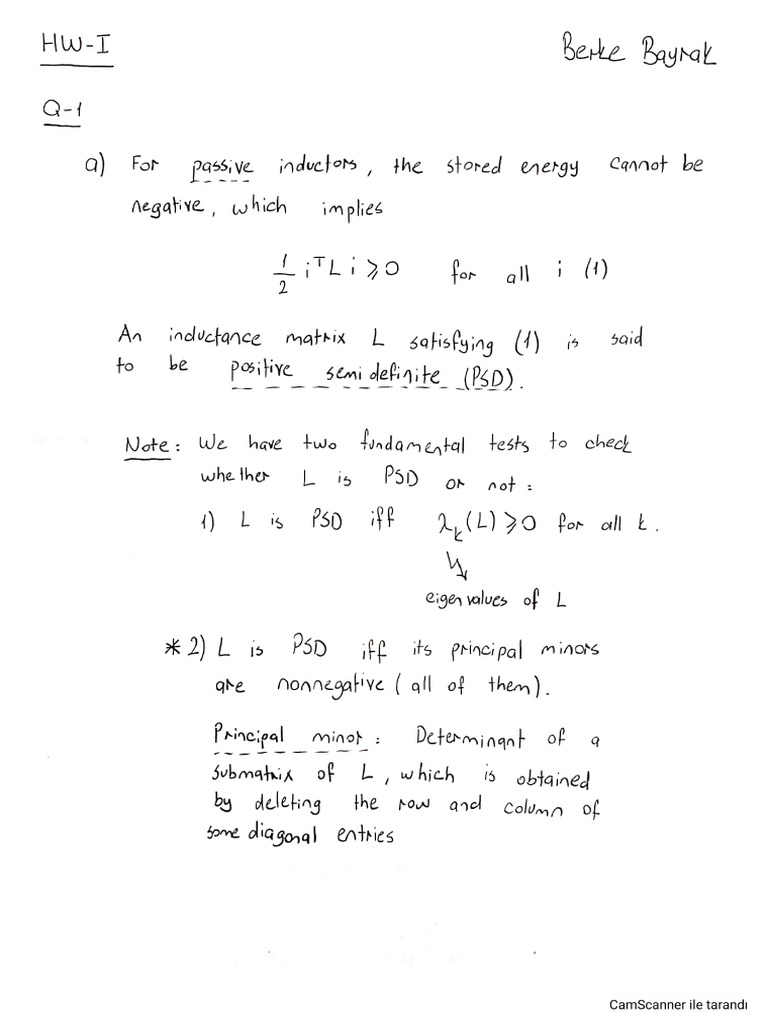 HW-I
Berke Bayrak
Q-1
a) For passive inductors, the stored energy cannot be
negative, which implies
1/2 iᵀLi ⩾ 0 for all i (1)
An inductance matrix L satisfying (1) is said
to be positive semidefinite (PSD).
Note: We have two fundamental tests to check
whether L is PSD or not:
1) L is PSD iff λₖ(L) ⩾ 0 for all k.
eigenvalues of L
* 2) L is PSD iff its principal minors
are nonnegative (all of them).
Principal minor: Determinant of a
submatrix of L, which is obtained
by deleting the row and column of
some diagonal entries
CamScanner ile tarandı